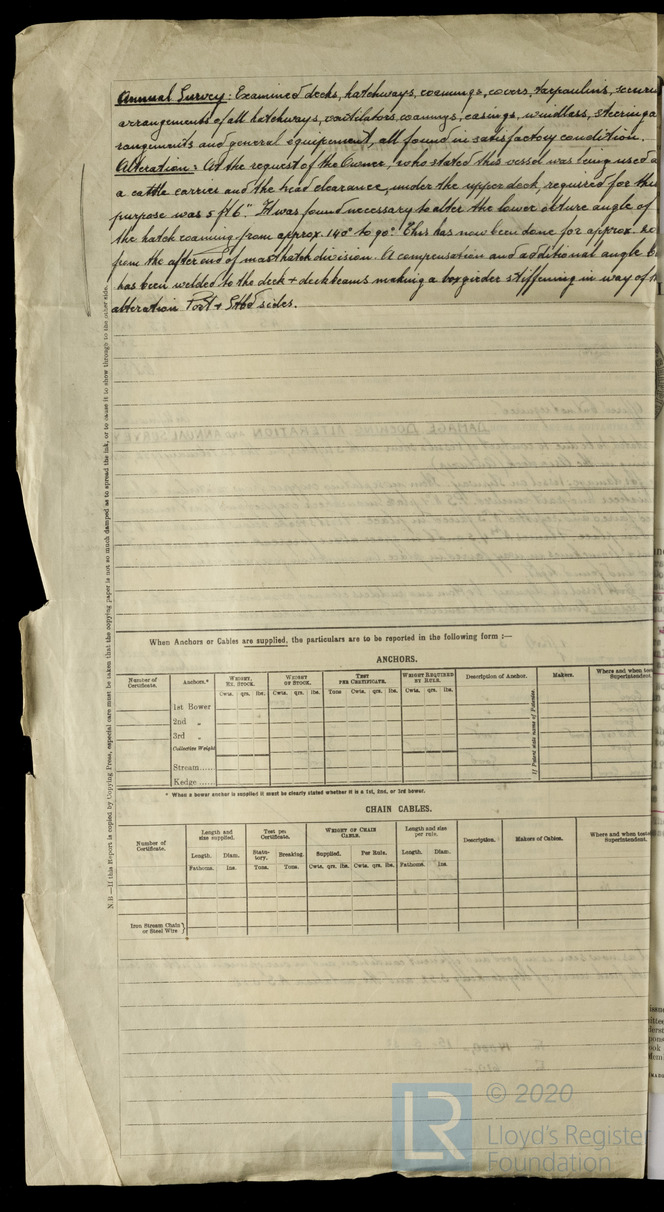 Annual Survey: Examined decks, hatchways, coamings, covers, tarpaulins, securi
arrangements of all hatchways, ventilators, coamings, casings, windlass, steering a
rangements and general equipement, all found in satisfactory condition.
Alteration: At the request of the Owner, who stated this vessel was being used a
a cattle carrier and the head clearance, under the upper deck, required for this
purpose was 5 ft 6". It was found necessary to alter the lower angle of
the hatch coaming from approx. 140° to 90°. This has now been done for approx.
from the after end of mast hatch division. A compensation and additional angle
has been welded to the deck + deckbeams making a boxgirder stiffening in way of
alteration Port + Stbd sides.
When Anchors or Cables are supplied, the particulars are to be reported in the following form :—
ANCHORS.
Number of Certificate. Anchors.* Weight, Ex. Stock. Weight of Stock. Test per Certificate. Weight Required by Rule. Description of Anchor. Makers. Where and when teste Superintendent.
Cwts. qrs. lbs. Cwts. qrs. lbs. Tons Cwts. qrs. lbs. Cwts. qrs. lbs.
1st Bower
2nd „
3rd „
Collective Weight
Stream.....
Kedge ......
If Patent state name of Patentee.
* When a bower anchor is supplied it must be clearly stated whether it is a 1st, 2nd, or 3rd bower.
CHAIN CABLES.
Number of Certificate. Length and size supplied. Test per Certificate. Weight of Chain Cable. Length and size per rule. Description. Makers of Cables. Where and when teste Superintendent.
Length. Diam. Statutory. Breaking. Supplied. Per Rule. Length. Diam.
Fathoms. Ins. Tons. Tons. Cwts. qrs. lbs. Cwts. qrs. lbs. Fathoms. Ins.
Iron Stream Chain or Steel Wire }
N.B.—If this Report is copied by Copying Press, especial care must be taken that the copying paper is not so much damped as to spread the ink, or to cause it to show through to the other side.
LR
© 2020
Lloyd's Register
Foundation